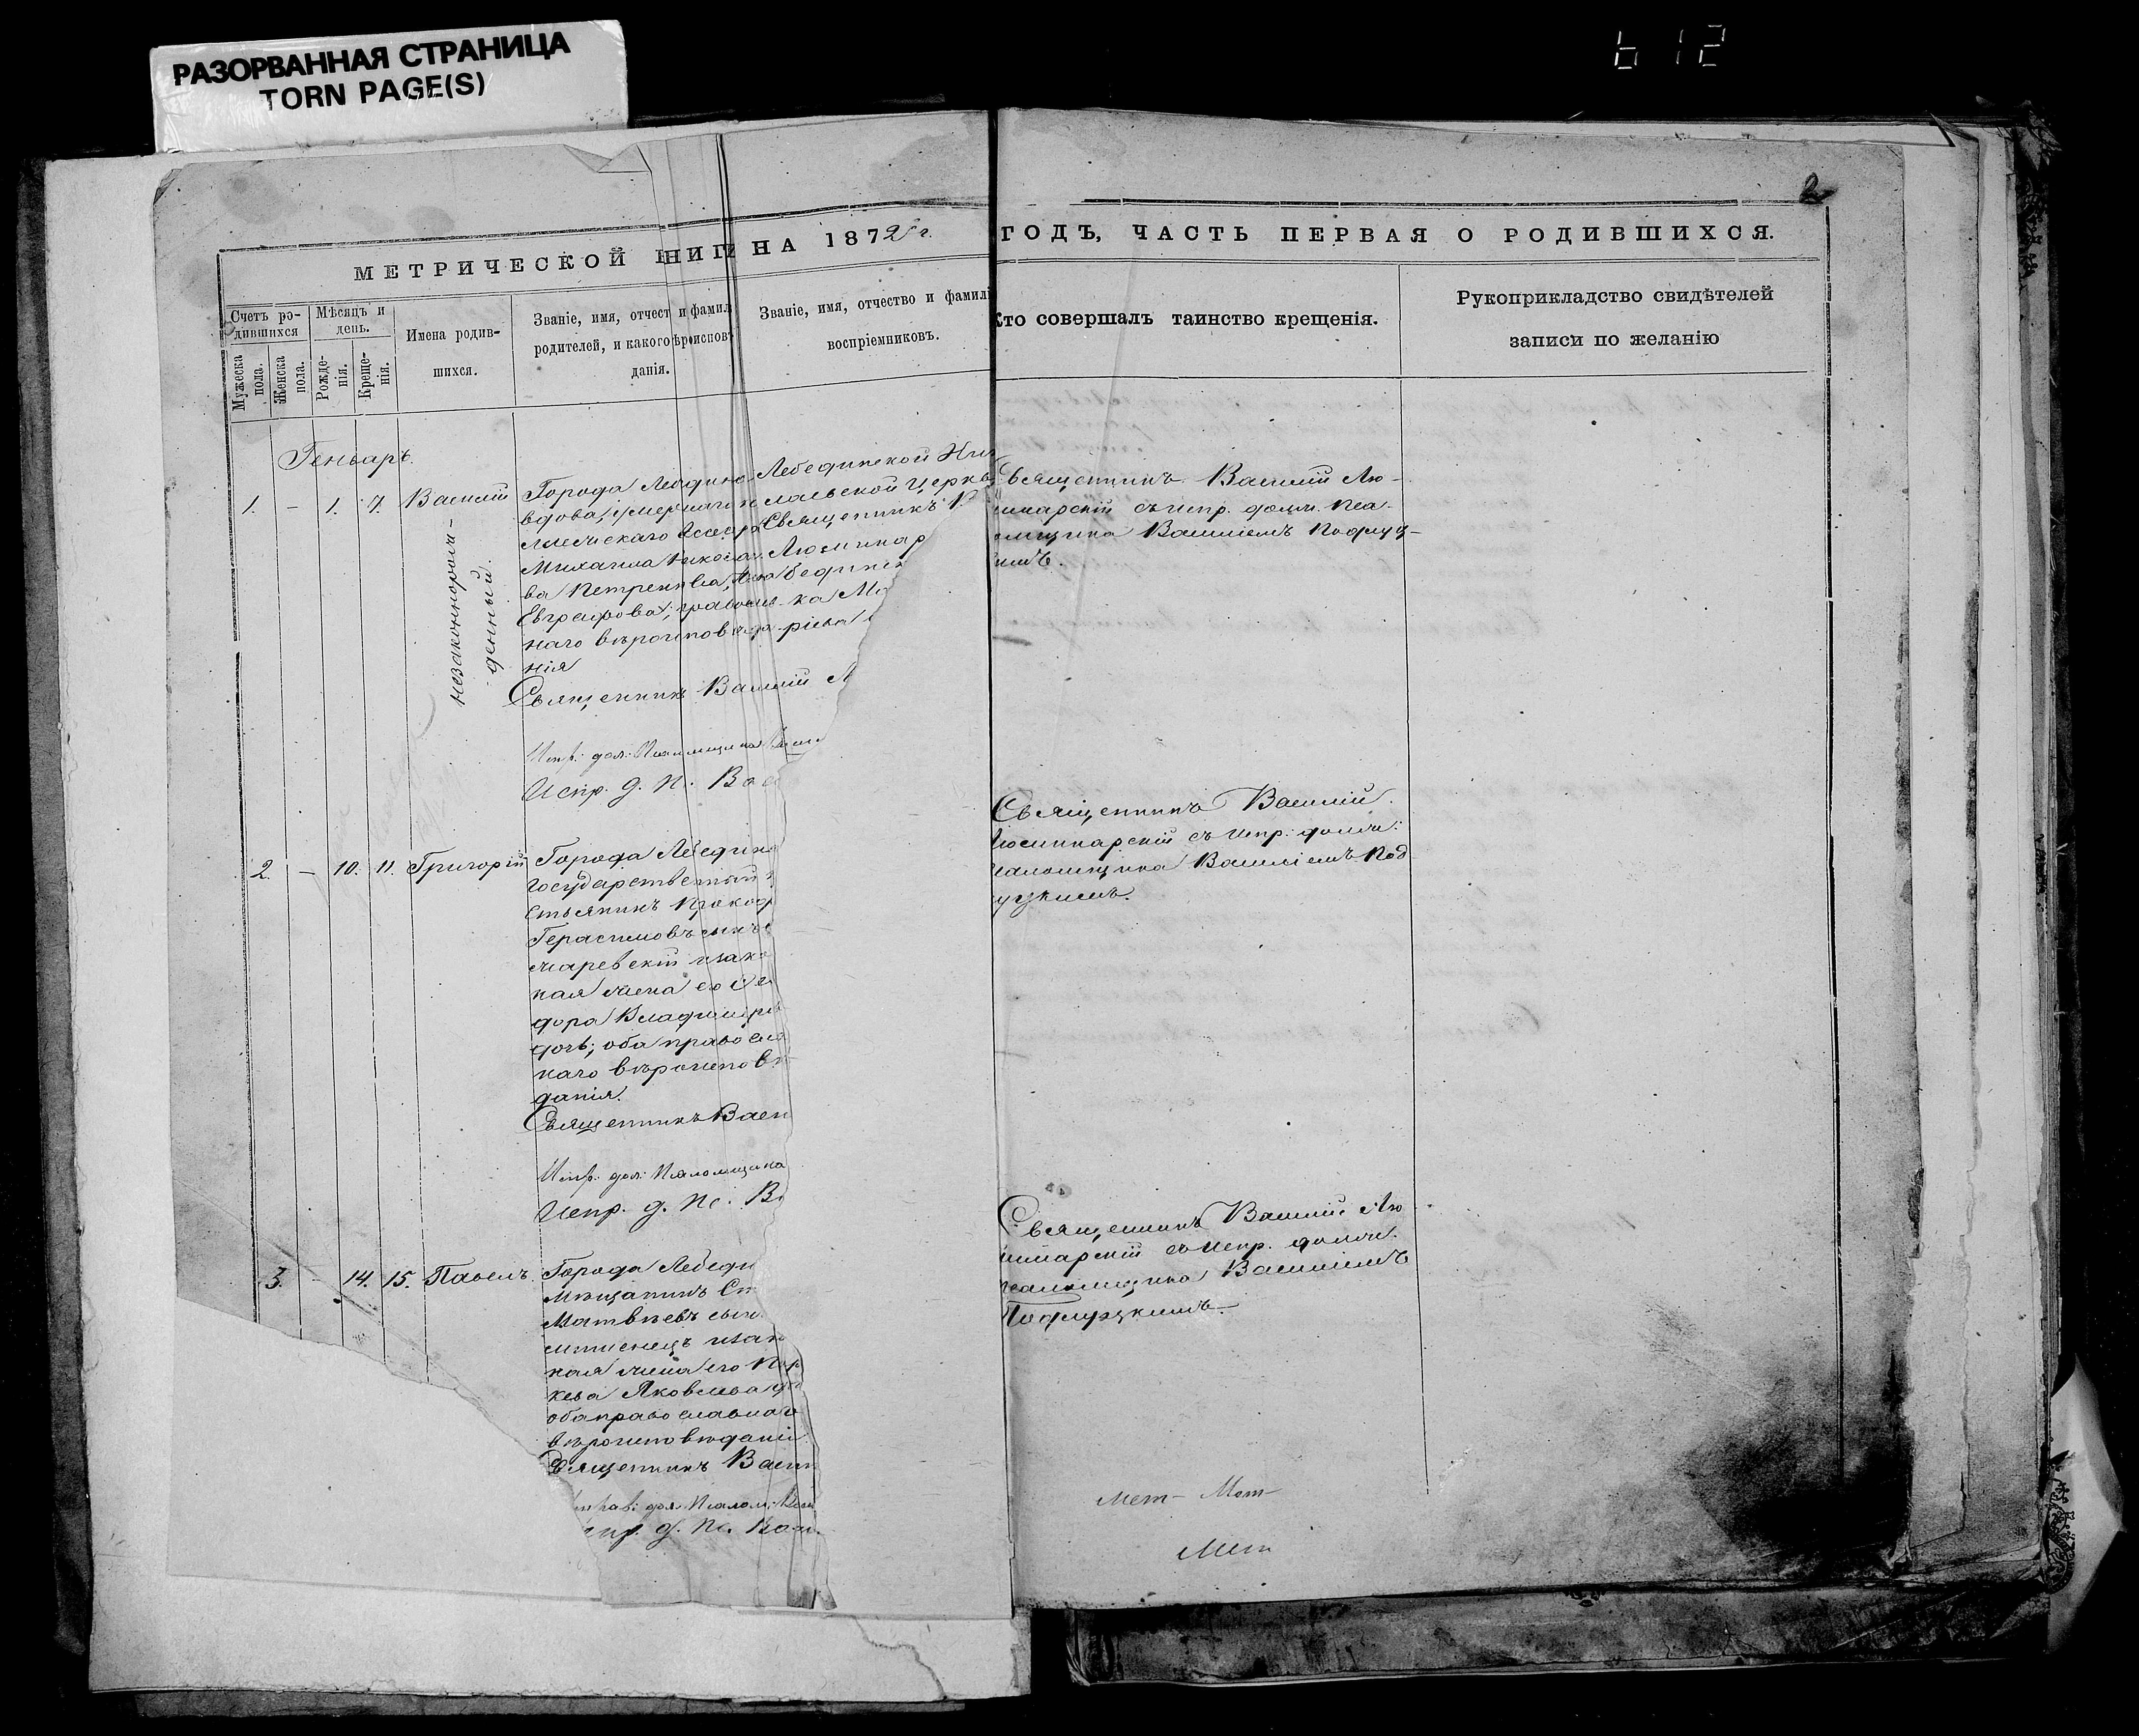 РАЗОРВАННАЯ СТРАНИЦА
TORN PAGE(S)
612
2
МЕТРИЧЕСКОЙ НА 1872 г.
ГОДЪ, ЧАСТЬ ПЕРВАЯ О РОДИВШИХСЯ.
Счетъ ро-
дившихся
Мужеска пола.
Женска пола.
Мѣсяцъ и
день.
Рожде-
нія.
Креще-
нія.
Имена родив-
шихся.
Званіе, имя, отчест и фамил
родителей, и какого вѣроисповѣ
данія.
Званіе, имя, отчество и фамилі
воспріемниковъ.
Кто совершалъ таинство крещенія.
Рукоприкладство свидѣтелей
записи по желанію
Геньварь.
1. – 1. 7. Василій
незаконнорож-
денный.
Города Лебедина
вдова, умершаго
Михаила Никола
ва Петренкова,
Евграфова; православ-
наго вѣроисповѣда-
нія
Священникъ Василій Л
Испр. дол. Псаломщика
Испр. д. Пс. Вас
Лебединской Ни
лаевской Церкв
Священникъ
Люминар
Священникъ Василій Лю-
минарскій съ испр. долж. Пса-
ломщика Василіемъ Подлуц-
кимъ.
2. – 10. 11. Григорій
Города Лебедина
государственный
стьянинъ Прокоф
Герасимовъ сынъ
маревскій и зако
ная жена его
дора Владимірова
дочь; оба православ
наго вѣроисповѣ
данія.
Священникъ Васи
Испр. дол. Псаломщика
Испр. д. Пс. Ва
Священникъ Василій
Люминарскій съ испр. долж.
Псаломщика Василіемъ Под
луцкимъ.
3. – 14. 15. Павелъ
Города Лебеди
Мѣщанинъ
Матвѣевъ сын
и зако
ная жена его
Яковлева
оба православнаго
вѣроисповѣданія
Священникъ Васи
Исправ. дол. Псалом.
Испр. д. Пс. Васи.
Священникъ Василій Лю
минарскій съ испр. долж.
Псаломщика Василіемъ
Подлуцкимъ.
Мет- Мет-
Мет